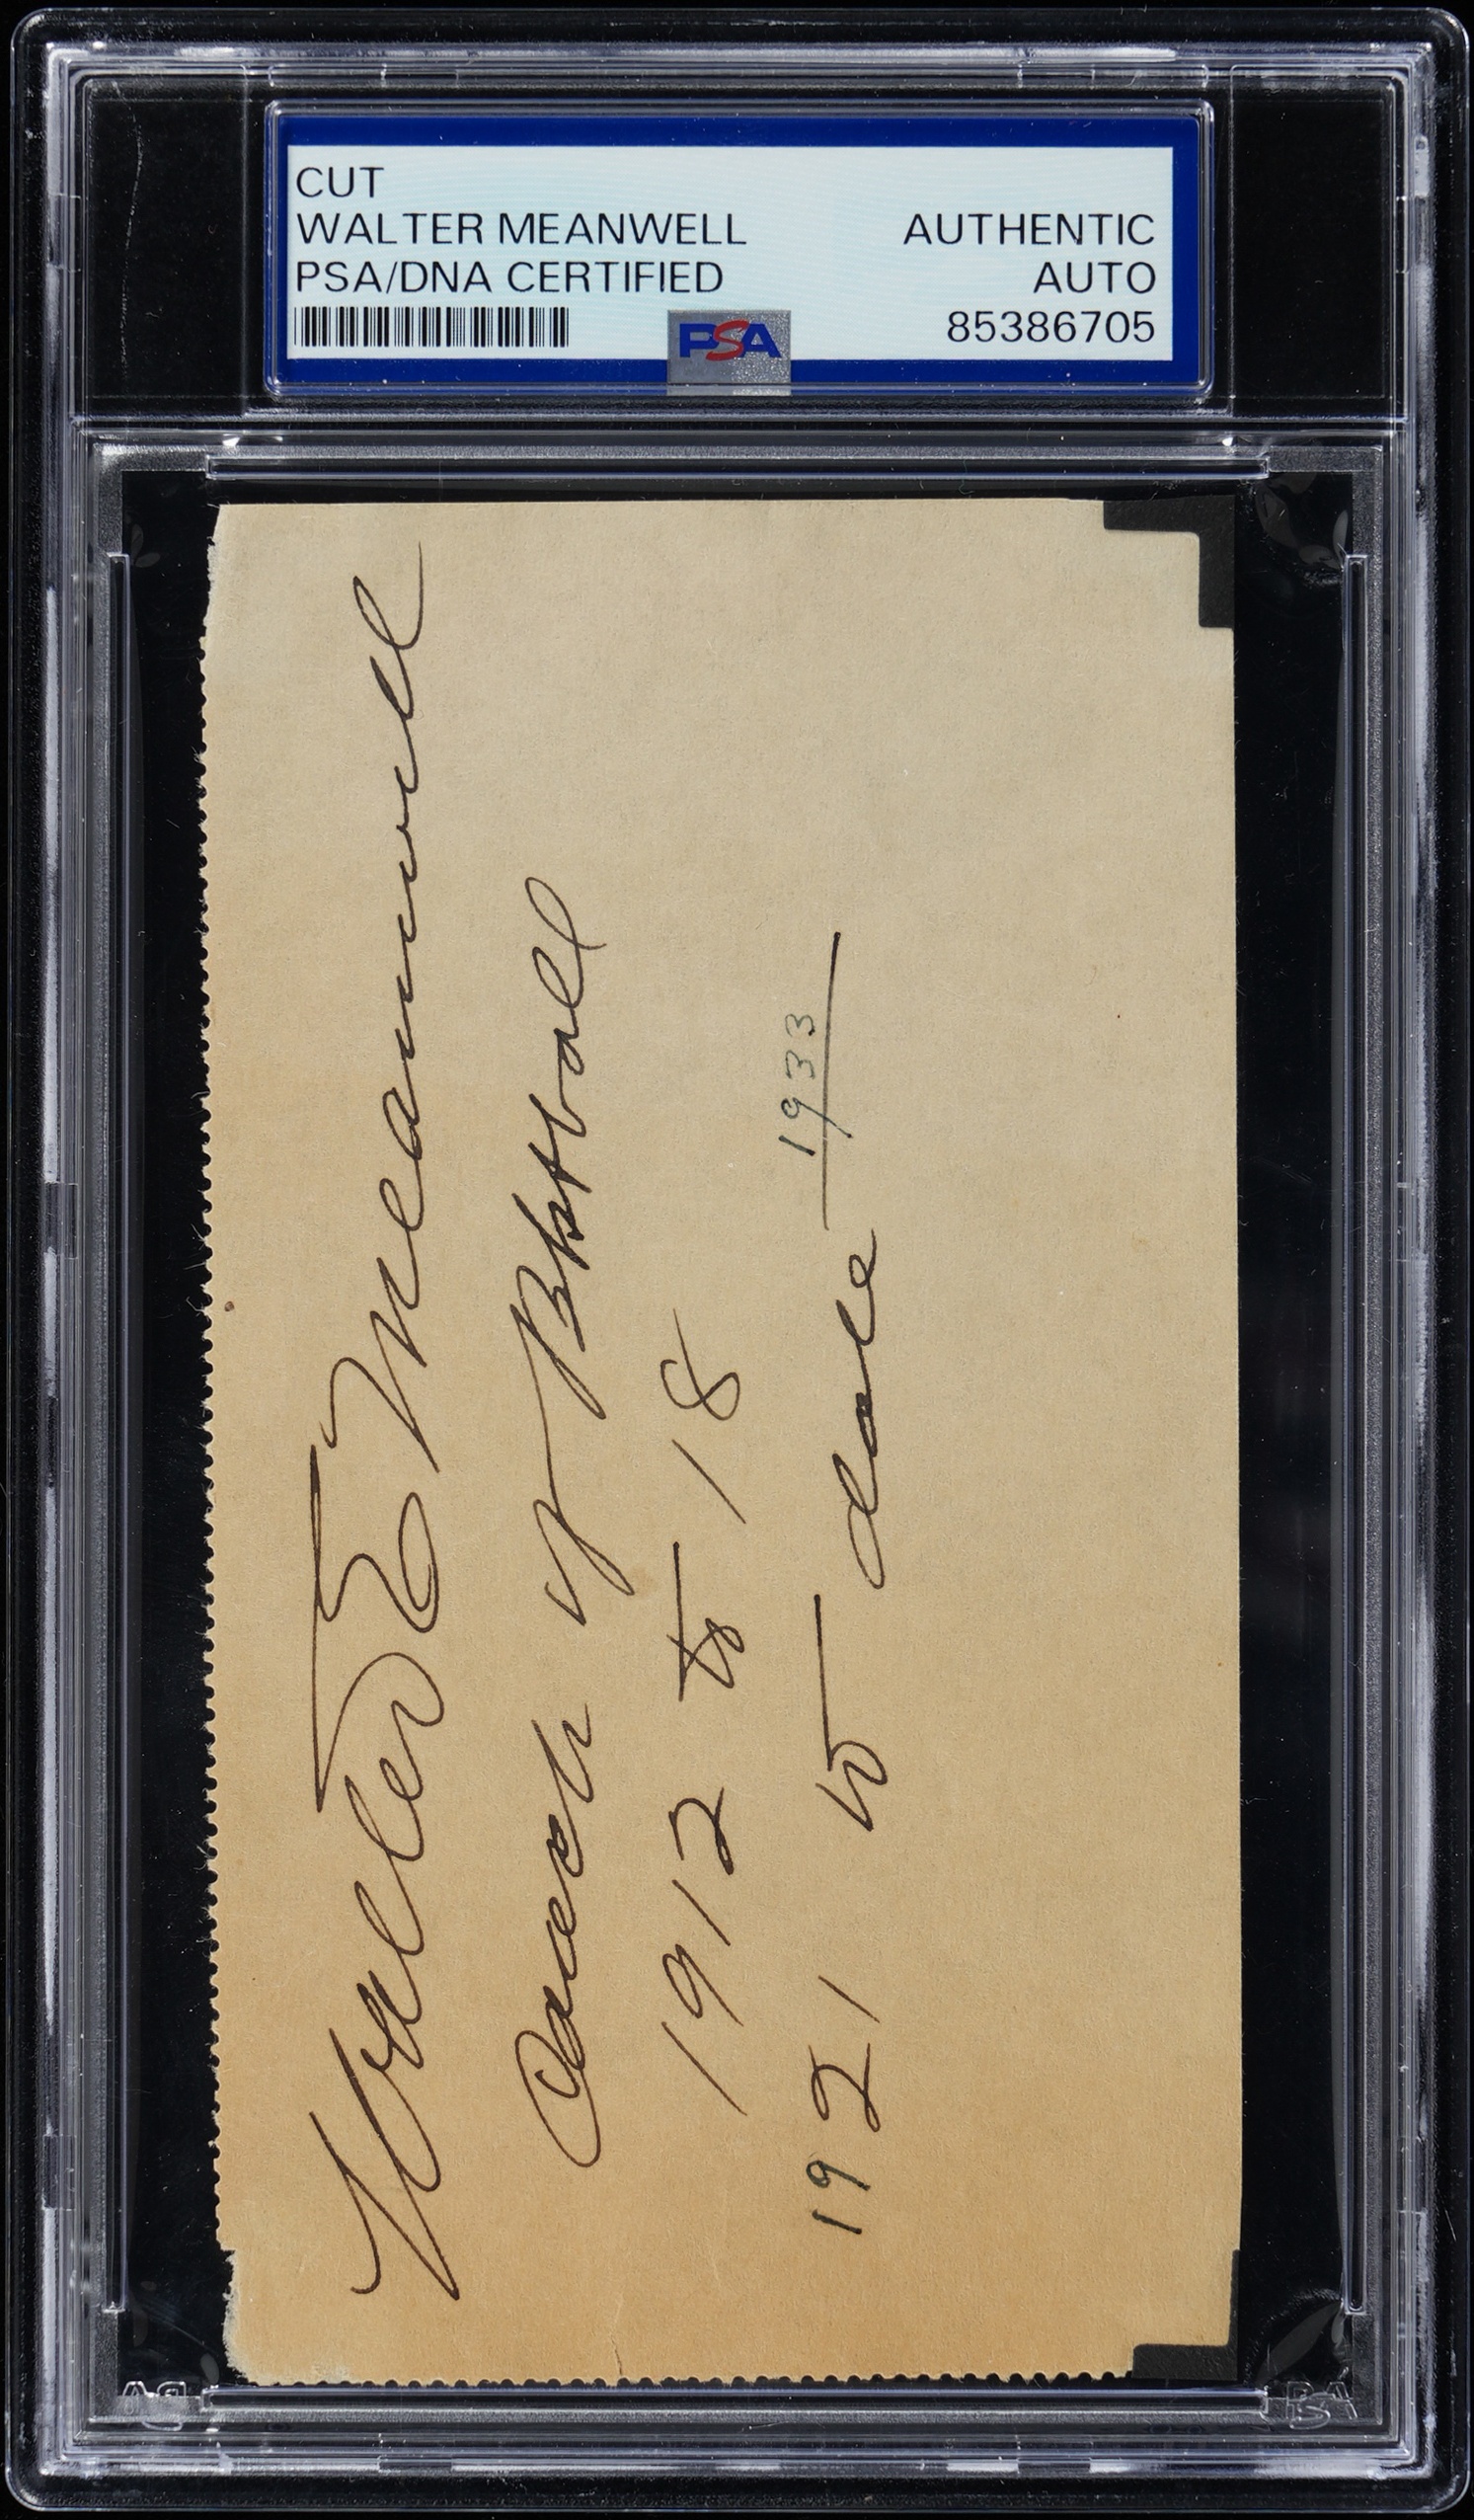 CUT
WALTER MEANWELL
PSA/DNA CERTIFIED
AUTHENTIC
AUTO
85386705
PSA
Walter E Meanwell
Coach of Bsktball
1912 to 18
1921 to date 1933
PSA
PSA